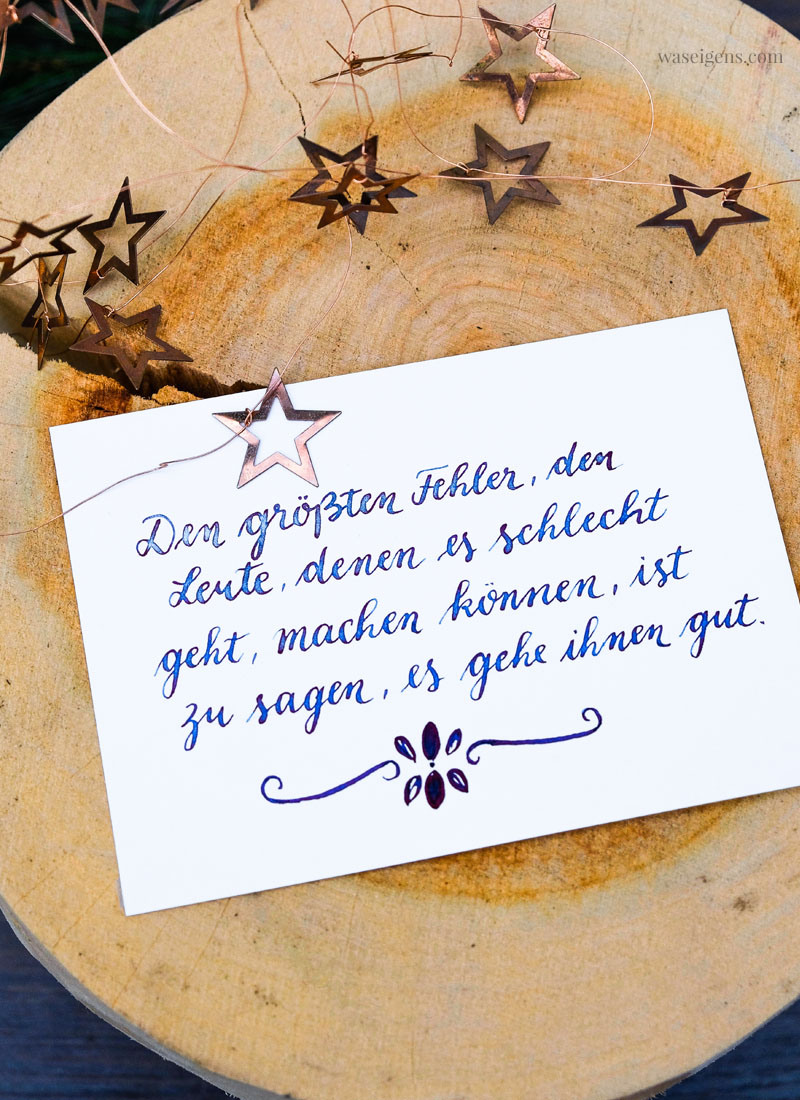 waseigens.com
Den größten Fehler, den
Leute, denen es schlecht
geht, machen können, ist
zu sagen, es gehe ihnen gut.